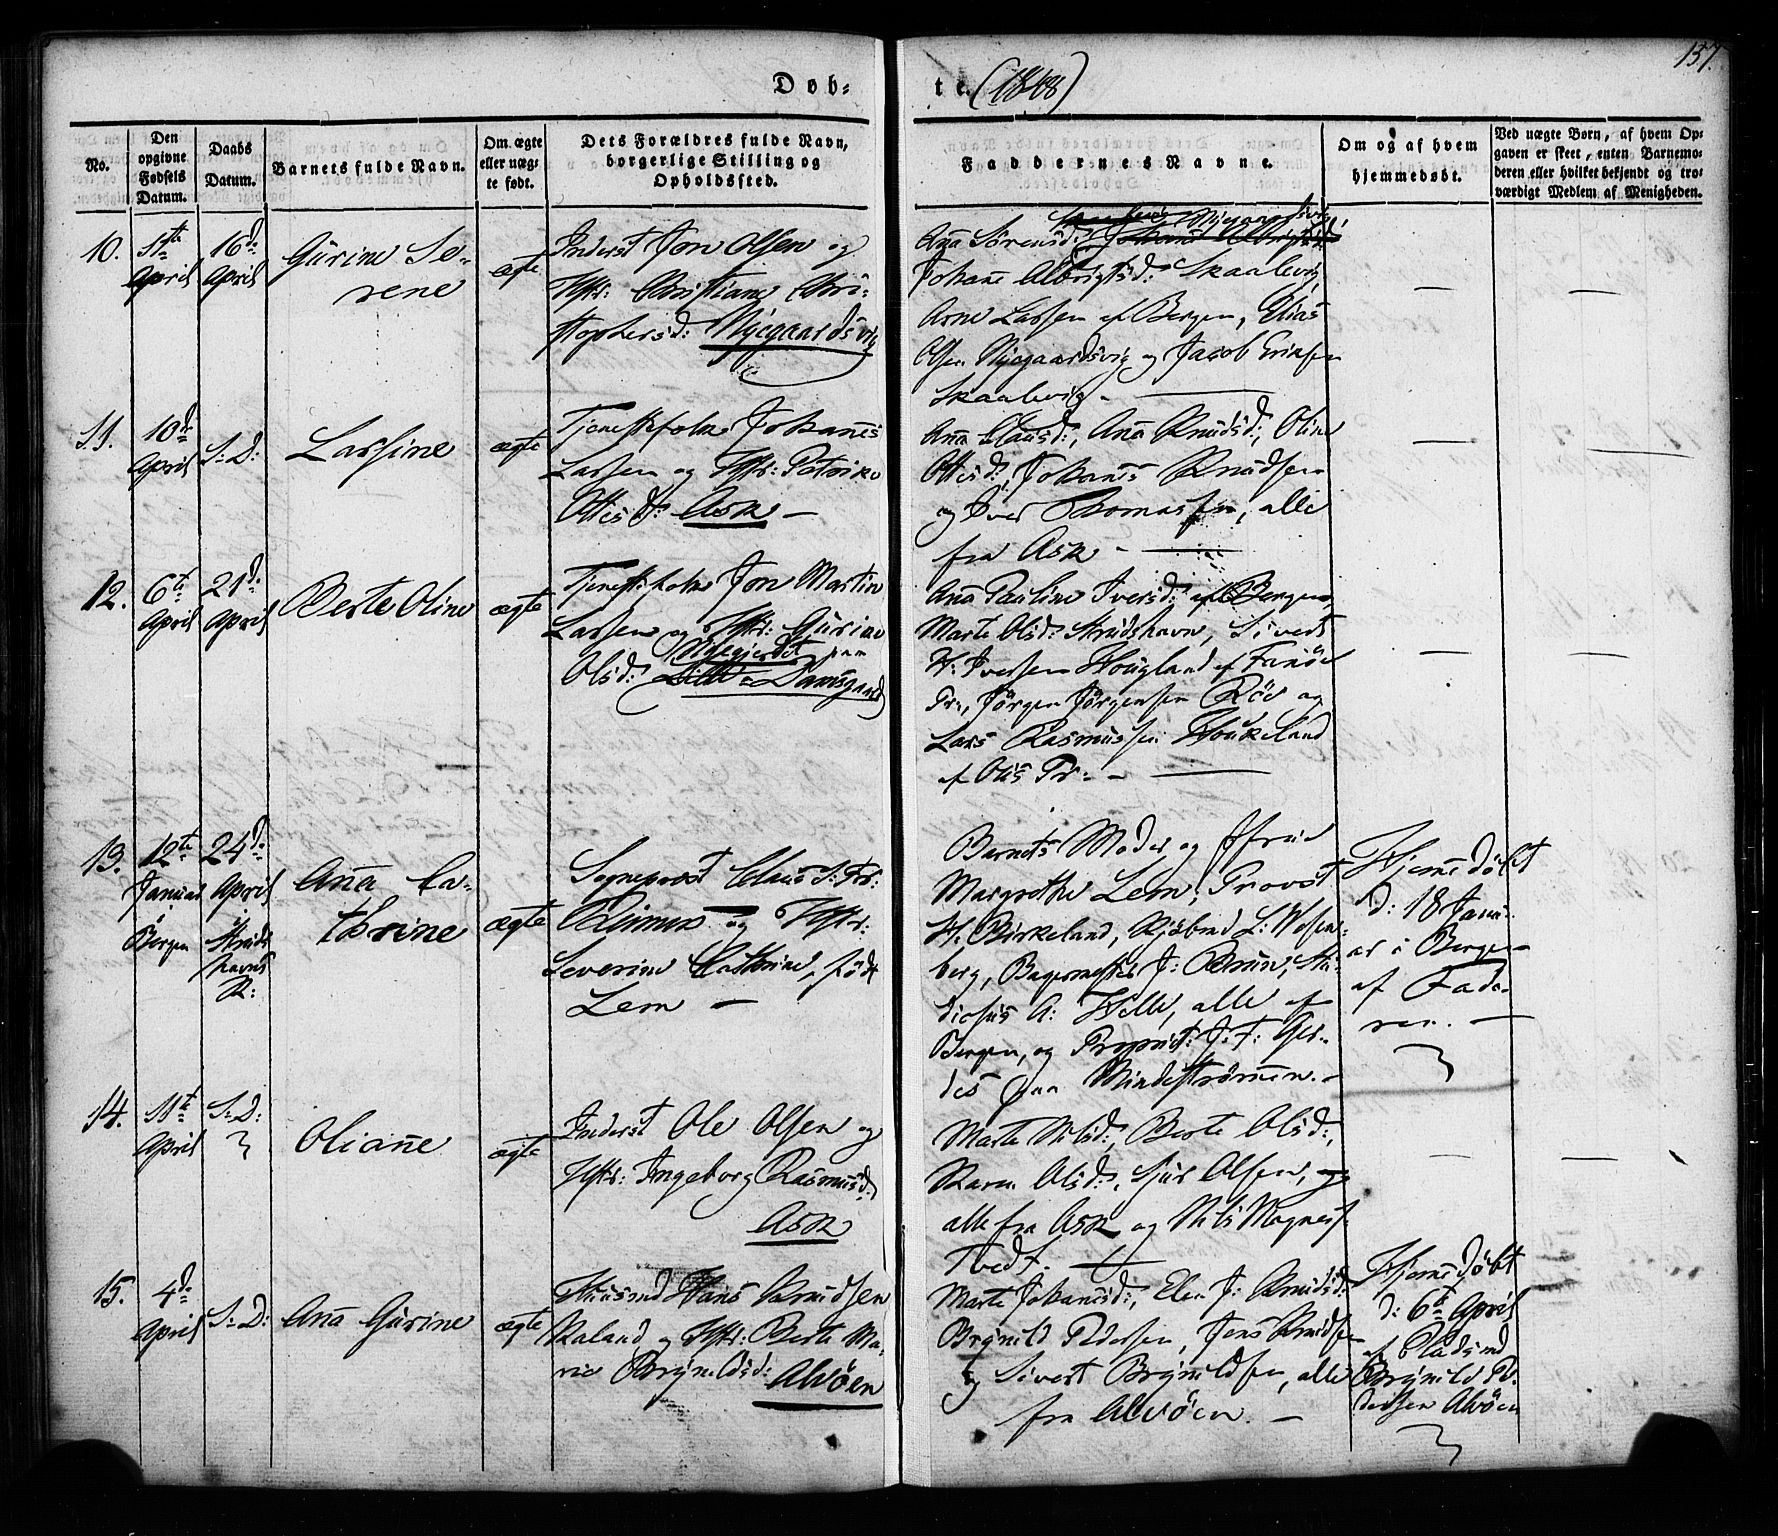 157.
Døb-
te. (1848)
No.
Den
opgivne
Fødsels
Datum.
Daabs
Datum.
Barnets fulde Navn.
Om ægte
eller uæg-
te født.
Dets Forældres fulde Navn,
borgerlige Stilling og
Opholdssted.
Faddernes Navne.
Om og af hvem
hjemmedøbt.
Ved uægte Børn, af hvem Op-
gaven er skeet, enten Barnemo-
deren eller hvilket bekjendt og tro-
værdigt Medlem af Menigheden.
10.
11te
April
16de
April
Gurine Se-
rene
ægte
Inderst Jon Olsen og
Hstr: Christiane Chri-
stophersd: Nygaardsvig
Ana Sørensd:
Johane Albrigtsd: Skaalevig
Arne Larsen af Bergen, Elias
Olsen Nygaardsvig og Jacob Eriksen
Skaalevig -
11.
10de
April
S: D:
Larsine
ægte
Tjenestefolk Johanes
Larsen og Hstr: Petrike
Ottesd: Ask -
Ana Clausd:, Ana Knudsd:, Oline
Ottesd:, Johanes Knudsen
og Iver Thomassen, alle
fra Ask -
12.
6te
April
21de
April
Berte Oline
ægte
Tjenestefolk Jon Martin
Larsen og Hstr: Gurine
Olsd: Lille-Damsgaard
Ana Pauline Iversd: af Bergen,
Marte Olsd: Strudshavn, Sivert
H: Iversen Hougland af Fanøe
Pr:, Jørgen Jørgensen Røe og
Lars Rasmussen Houkeland
af Ous Pr: -
13.
12te
Januar
Bergen
24de
April
Struds
havns
K:
Ana Ca-
thrine
ægte
Sogneprest Claus
og Hstr:
Severine Cathrine, født
Lem -
Barnets Moder og Jfru
Margrethe Lem, Provst
H. Birkeland, Kjøbmd L: Wesen-
berg, Bagermester J: Bruun, Stu-
diosus A: Welle, alle af
Bergen, og Propriet: J: F: Ger-
des paa Mindestrømmen. -
Hjemedøbt
d: 18 Janu-
ar i Bergen
af Fade-
ren. -
14.
11te
April
S: D:
Oliane
ægte
Inderst Ole Olsen og
Hstr: Ingeborg Rasmusd:
Ask
Marte Nilsd:, Berte Olsd:,
Karen Olsd:, Sjur Olsen,
alle fra Ask og Nils Magnes.
Tvedt.
15.
4de
April
S: D:
Ana Gurine
ægte
Huusmd Hans Knudsen
Raland og Hstr: Berte Ma-
rie Brynildsd: Alvøen
Marte Johanesd:, Elen J: Knudsd:
Brynild Pedersen, Jens Knudsen
og Sivert Brynildsen, alle
fra Alvøen. -
Hjemedøbt
d: 6te April
af Pladsmd
Brynild Pe-
dersen Alvøen